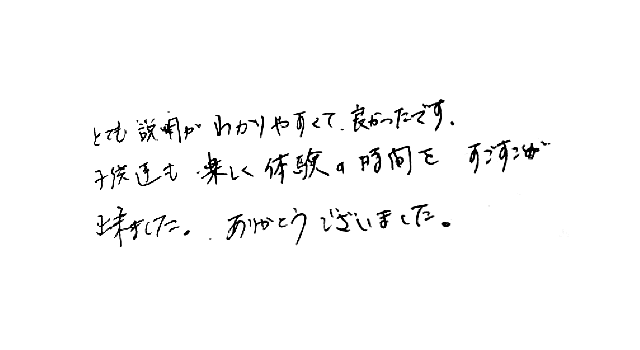 とても説明がわかりやすくて、良かったです。
子供達も楽しく体験の時間をすごすことが
出来ました。ありがとうございました。